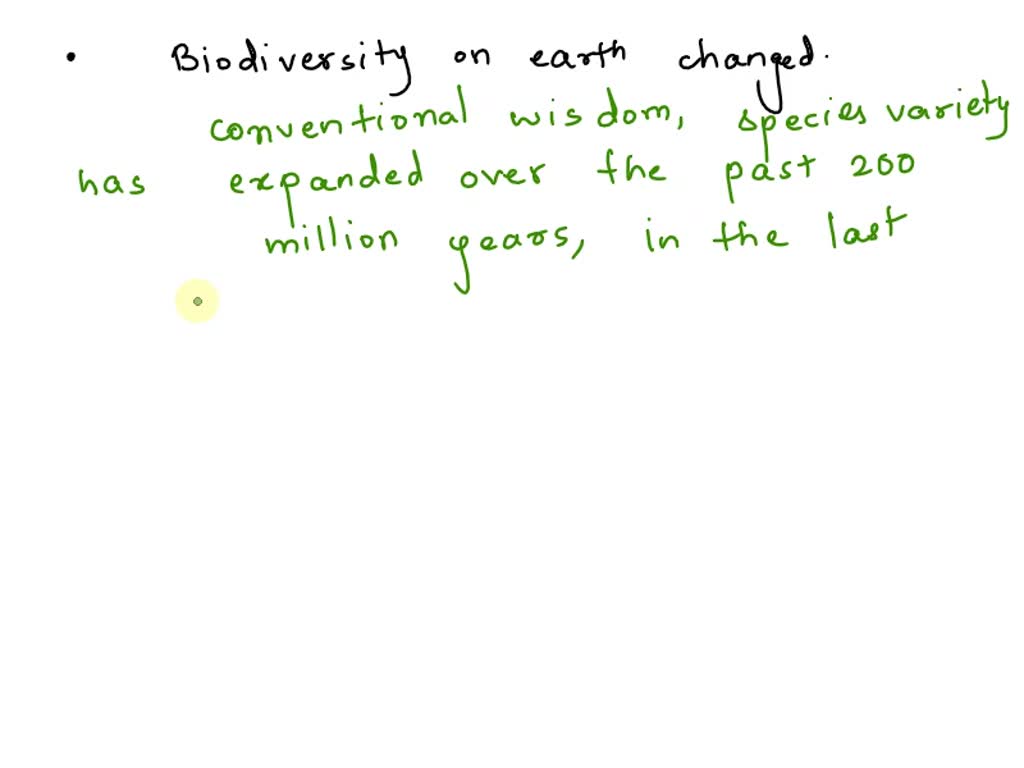 • Biodiversity on earth changed.
conventional wisdom, species variety
has expanded over the past 200
million years, in the last